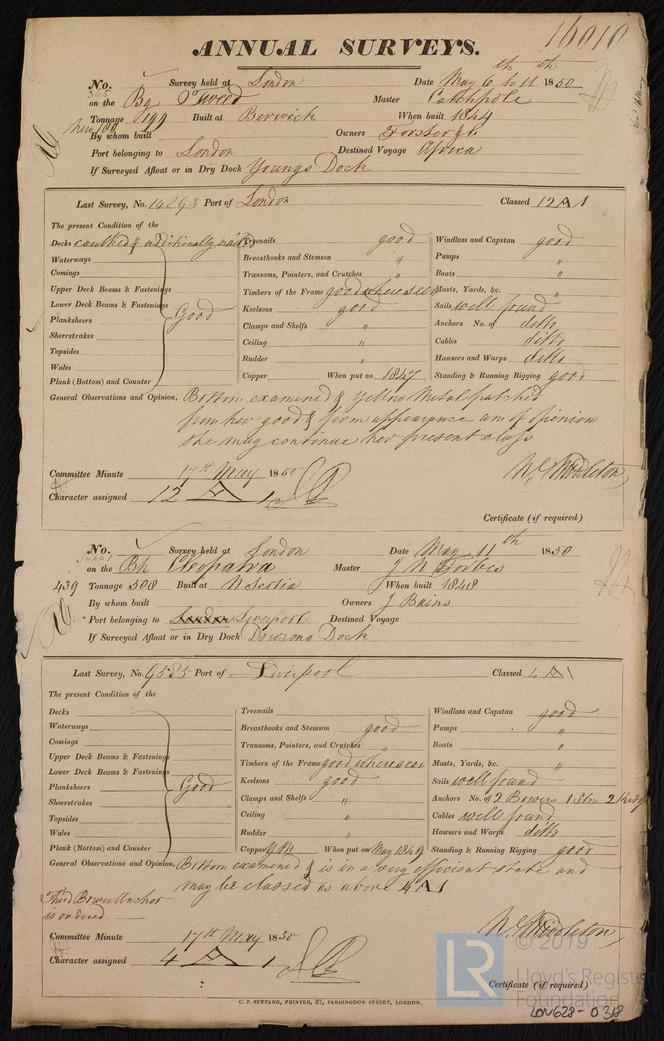 16010
ANNUAL SURVEYS.
No. 365 Survey held at London Date May 6th to 11th 1850
on the Bg Tweed Master Catchpole
Tonnage 199 Built at Berwick When built 1844
New 180
By whom built Owners Forster & Co
Port belonging to London Destined Voyage Africa
If Surveyed Afloat or in Dry Dock Youngs Dock
Last Survey, No. 14893 Port of London Classed 12 A 1
The present Condition of the
Decks caulked & additionally Treenails good Windlass and Capstan good
Waterways Breasthooks and Stemson " Pumps "
Comings Transoms, Pointers, and Crutches " Boats "
Upper Deck Beams & Fastenings Timbers of the Frame good where seen Masts, Yards, &c. "
Lower Deck Beams & Fastenings Keelsons good Sails well found
Planksheers Good Clamps and Shelfs " Anchors No. of ditto
Sheerstrakes Ceiling " Cables ditto
Topsides Rudder " Hawsers and Warps ditto
Wales Copper When put on 1847 Standing & Running Rigging good
Plank (Bottom) and Counter
General Observations and Opinion, Bottom examined & Yellow Metal patched
from her good & firm appearance am of opinion
she may continue her present class
Wm Middleton
Committee Minute 17th May 1850
Character assigned 12 A 1
Certificate (if required)
No. Survey held at London Date May 11th 1850
on the Bk Cleopatra Master J N Forbes
439 Tonnage 508 Built at N Scotia When built 1848
By whom built Owners J Bains
Port belonging to London Liverpool Destined Voyage
If Surveyed Afloat or in Dry Dock Dowsons Dock
Last Survey, No. 9585 Port of Liverpool Classed 4 A 1
The present Condition of the
Decks Treenails Windlass and Capstan good
Waterways Breasthooks and Stemson good Pumps "
Comings Transoms, Pointers, and Crutches " Boats "
Upper Deck Beams & Fastenings Timbers of the Frame good where seen Masts, Yards, &c. "
Lower Deck Beams & Fastenings Keelsons good Sails well found
Planksheers Good Clamps and Shelfs " Anchors No. of 2 Bowers 1 Stm 2 Kedg
Sheerstrakes Ceiling " Cables well found
Topsides Rudder " Hawsers and Warps ditto
Wales Copper Y M When put on May 1849 Standing & Running Rigging good
Plank (Bottom) and Counter
General Observations and Opinion, Bottom examined & is in a very efficient state and
may be classed as above 4 A 1
Third Bower Anchor
is ordered
Wm Middleton
Committee Minute 17th May 1850
Character assigned 4 A 1
Certificate (if required)
C. F. SEYFANG, PRINTER, 57, FARRINGDON STREET, LONDON.
LR © 2019
Lloyd's Register
Foundation
LON628-0318